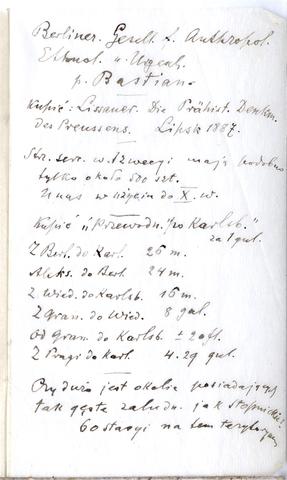 Berliner. Gesell. f. Anthropol.
Ethnol. u. Urgesch.
p. Bastian.
Kupić: Lissauer. Die Prähist. Denkm.
der Preussens. Lipsk 1887.
Str. serc. w. Szwecyi mają podobno
tylko około 500 szt.
U nas w użyciu do X. w.
Kupić „Przewodn. po Karlsb."
za 1 gul.
Z Berl. do Karl. 26 m.
Aleks. do Berl. 24 m.
Z Wied. do Karlsb. 16 m.
Z Gran. do Wied. 8 gul.
Od Gran. do Karlsb. ± 20 fl.
Z Pragi do Karl. 4.29 gul.
Czy dużo jest okolic posiadających
tak gęste zaludn. jak Stopnickie?
60 stacyj na tem terytoryum